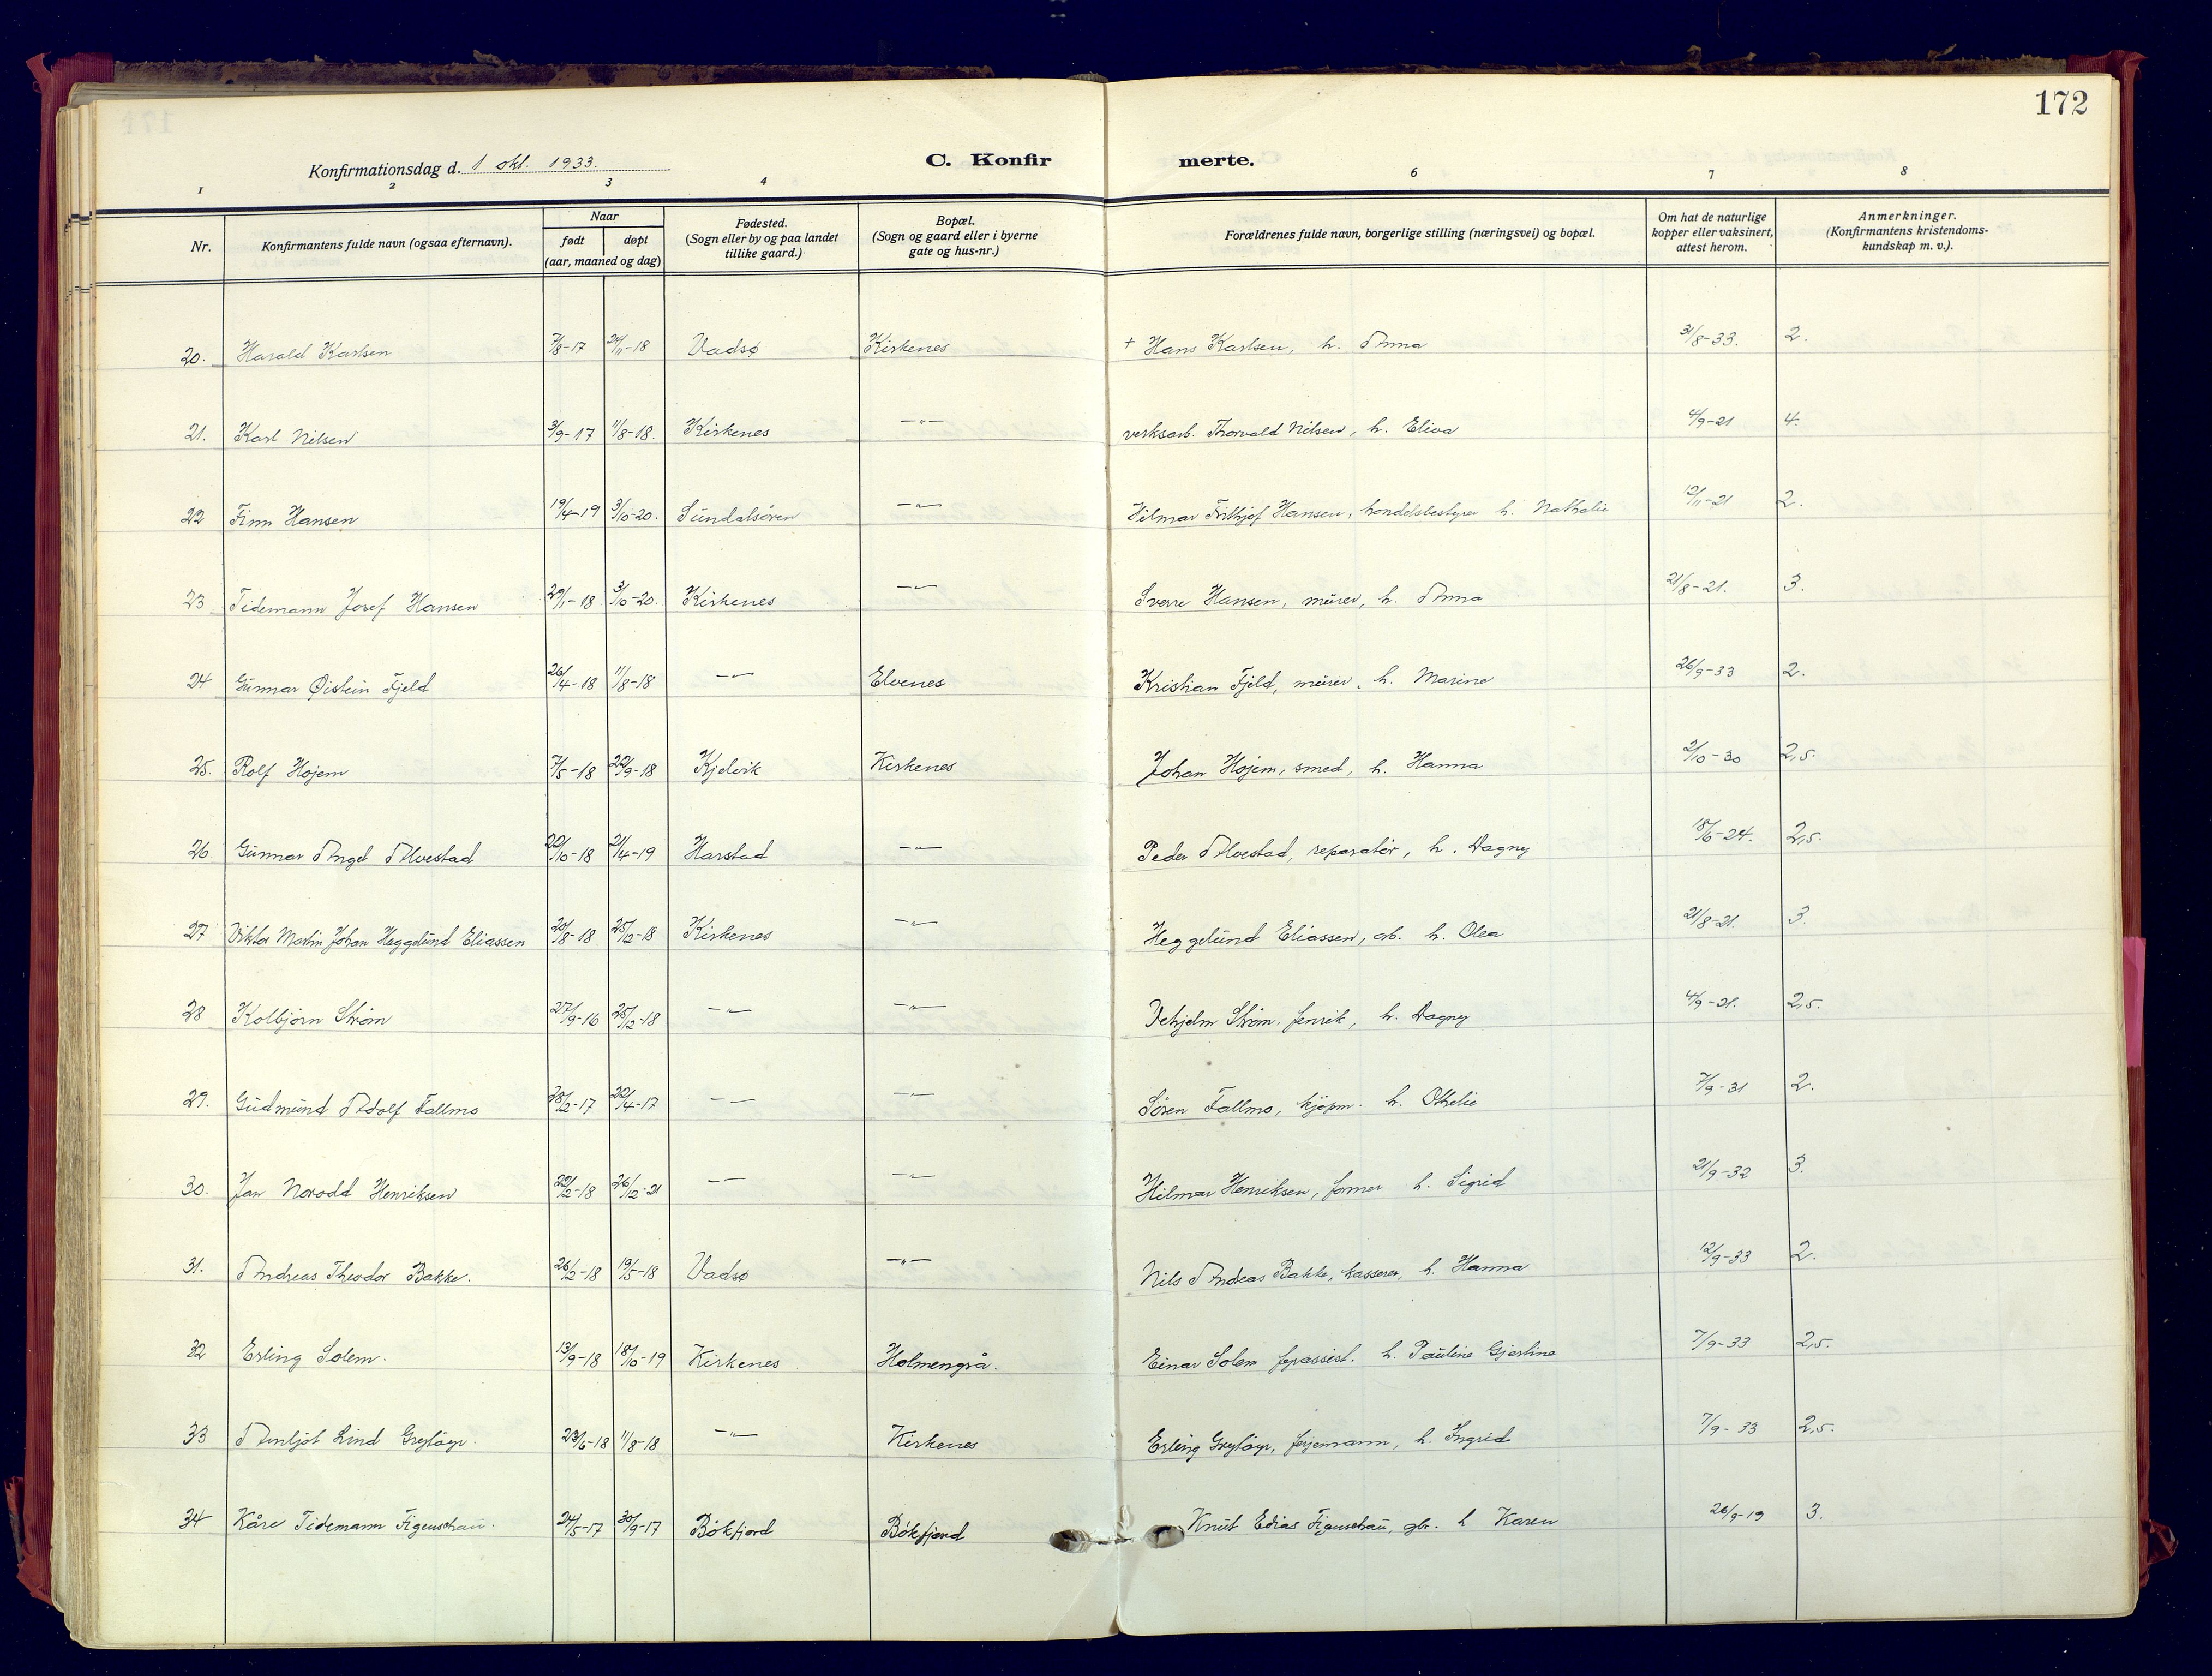 172
Konfirmationsdag d. 1 okt. 1933.
C. Konfir merte.
1 2 3 4 6 7 8
Nr. | Konfirmantens fulde navn (ogsaa efternavn). | Naar født døpt (aar, maaned og dag) | Fødested. (Sogn eller by og paa landet tillike gaard.) | Bopæl. (Sogn og gaard eller i byerne gate og hus-nr.) | Forældrenes fulde navn, borgerlige stilling (næringsvei) og bopæl. | Om hat de naturlige kopper eller vaksinert, attest herom. | Anmerkninger. (Konfirmantens kristendoms-kundskap m. v.).
20. Harald Karlsen 7/8-17 24/11-18 Vadsø Kirkenes + Hans Karlsen, h. Anna 31/8-33. 2.
21. Karl Nilsen 3/9-17 11/8-18. Kirkenes —"— verksarb. Thorvald Nilsen, h. Eliva 4/9-21 4.
22 Finn Hansen 19/4-19 3/10-20. Sundalsøren —"— Hilmar Frithjof Hansen, handelsbestyrer h. Nathalie 12/11-21 2.
23 Tidemann Josef Hansen 29/1-18 3/10-20. Kirkenes —"— Sverre Hansen, murer, h. Anna 21/8-21. 3.
24 Gunnar Øistein Fjeld 26/4-18 11/8-18 —"— Elvenes Kristian Fjeld, murer, h. Marine 26/9-33 2.
25. Rolf Hojem 7/5-18 22/9-18 Kjelvik Kirkenes Johan Hojem, smed, h. Hanna 2/10-30 2,5.
26 Gunnar Angel Alvestad 20/10-18 21/4-19 Harstad —"— Peder Alvestad, reparatør, h. Dagny 18/6-24. 2,5.
27 Viktor Martin Johan Heggelund Eliassen 20/8-18 25/12-18 Kirkenes —"— Heggelund Eliassen, arb. h. Olea 21/8-21. 3.
28 Kolbjørn Strøm 27/9-16 25/12-18 —"— —"— Strøm, fenrik, h. Dagny 4/9-21. 2,5.
29. Gudmund Adolf Fallmo 28/2-17 22/4-17 —"— —"— Søren Fallmo, kjøpm. h. Othelie 7/9-31 2.
30. Jan Norodd Henriksen 22/12-18 26/12-21 —"— —"— Hilmar Henriksen, former h. Sigrid 21/9-32 3.
31. Andreas Theodor Bakke. 26/2-18 19/5-18 Vadsø —"— Nils Andreas Bakke, kasserer, h. Hanna 12/9-33 2.
32 Erling Solem. 13/9-18 18/10-19 Kirkenes Holmengrå. Einar Solem fyrassist. h. Pauline Gjertine 7/9-33 2,5.
33 Arnljot Lind 23/6-18 11/8-18 —"— Kirkenes Erling h. Ingrid 7/9-33 2,5.
34 Kåre Tidemann Figenschau. 24/5-17 30/9-17 Bøkfjord Bøkfjord Knut Edias Figenschau, gbr. h Karen 26/9-19 3.